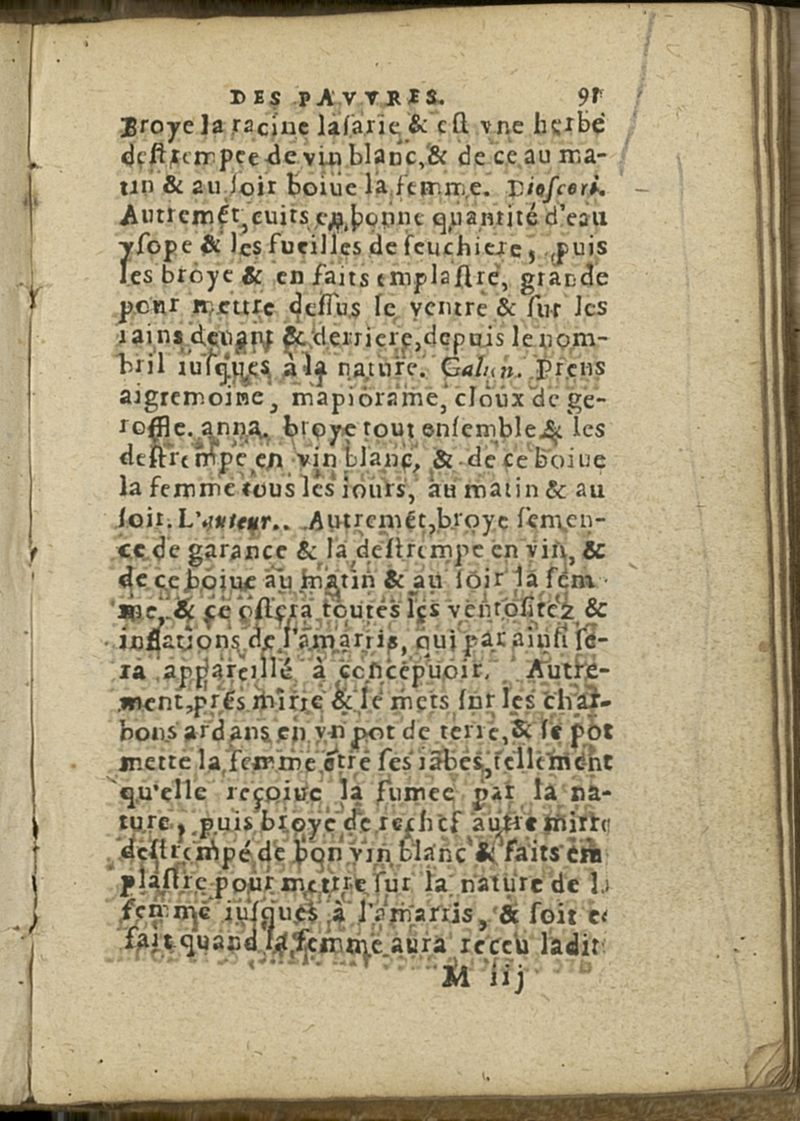 DES PAVVRES. 91
Broye la racine lasarie & est vne herbe
destrempee de vin blanc, & de ce au ma-
tin & au soir boiue la femme. Dioscori.
Autremét, cuits en bonne quantité d'eau
ysope & les fueilles de feuchiere, puis
les broye & en faits emplastre, grande
pour mettre dessus le ventre & sur les
rains deuant & derriere, depuis le nom-
bril iusques à la nature. Galien. Prens
aigremoine, mapiorame, cloux de ge-
roffle. anna. broye tout ensemble & les
destrempe en vin blanc, & de ce boiue
la femme tous les iours, au matin & au
soir. L'auteur.. Autremét, broye semen-
ce de garance & la destrempe en vin, &
de ce boiue au matin & au soir la fem-
me, & ce ostera toutes les ventositez &
inflations de l'amarris, qui par ainsi se-
ra appareillé à concepuoir. Autre-
ment, prés mirre & le mets sur les char-
bons ardans en vn pot de terre, & se pot
mette la femme étre ses iãbes, tellement
qu'elle reçoiue la fumee par la na-
ture, puis broye de rechef autre mirre
destrempé de bon vin blanc & faits em
plastre pour mettre sur la nature de la
femme iusques à l'amarris, & soit ce
fait quand la femme aura receu ladit
M iij